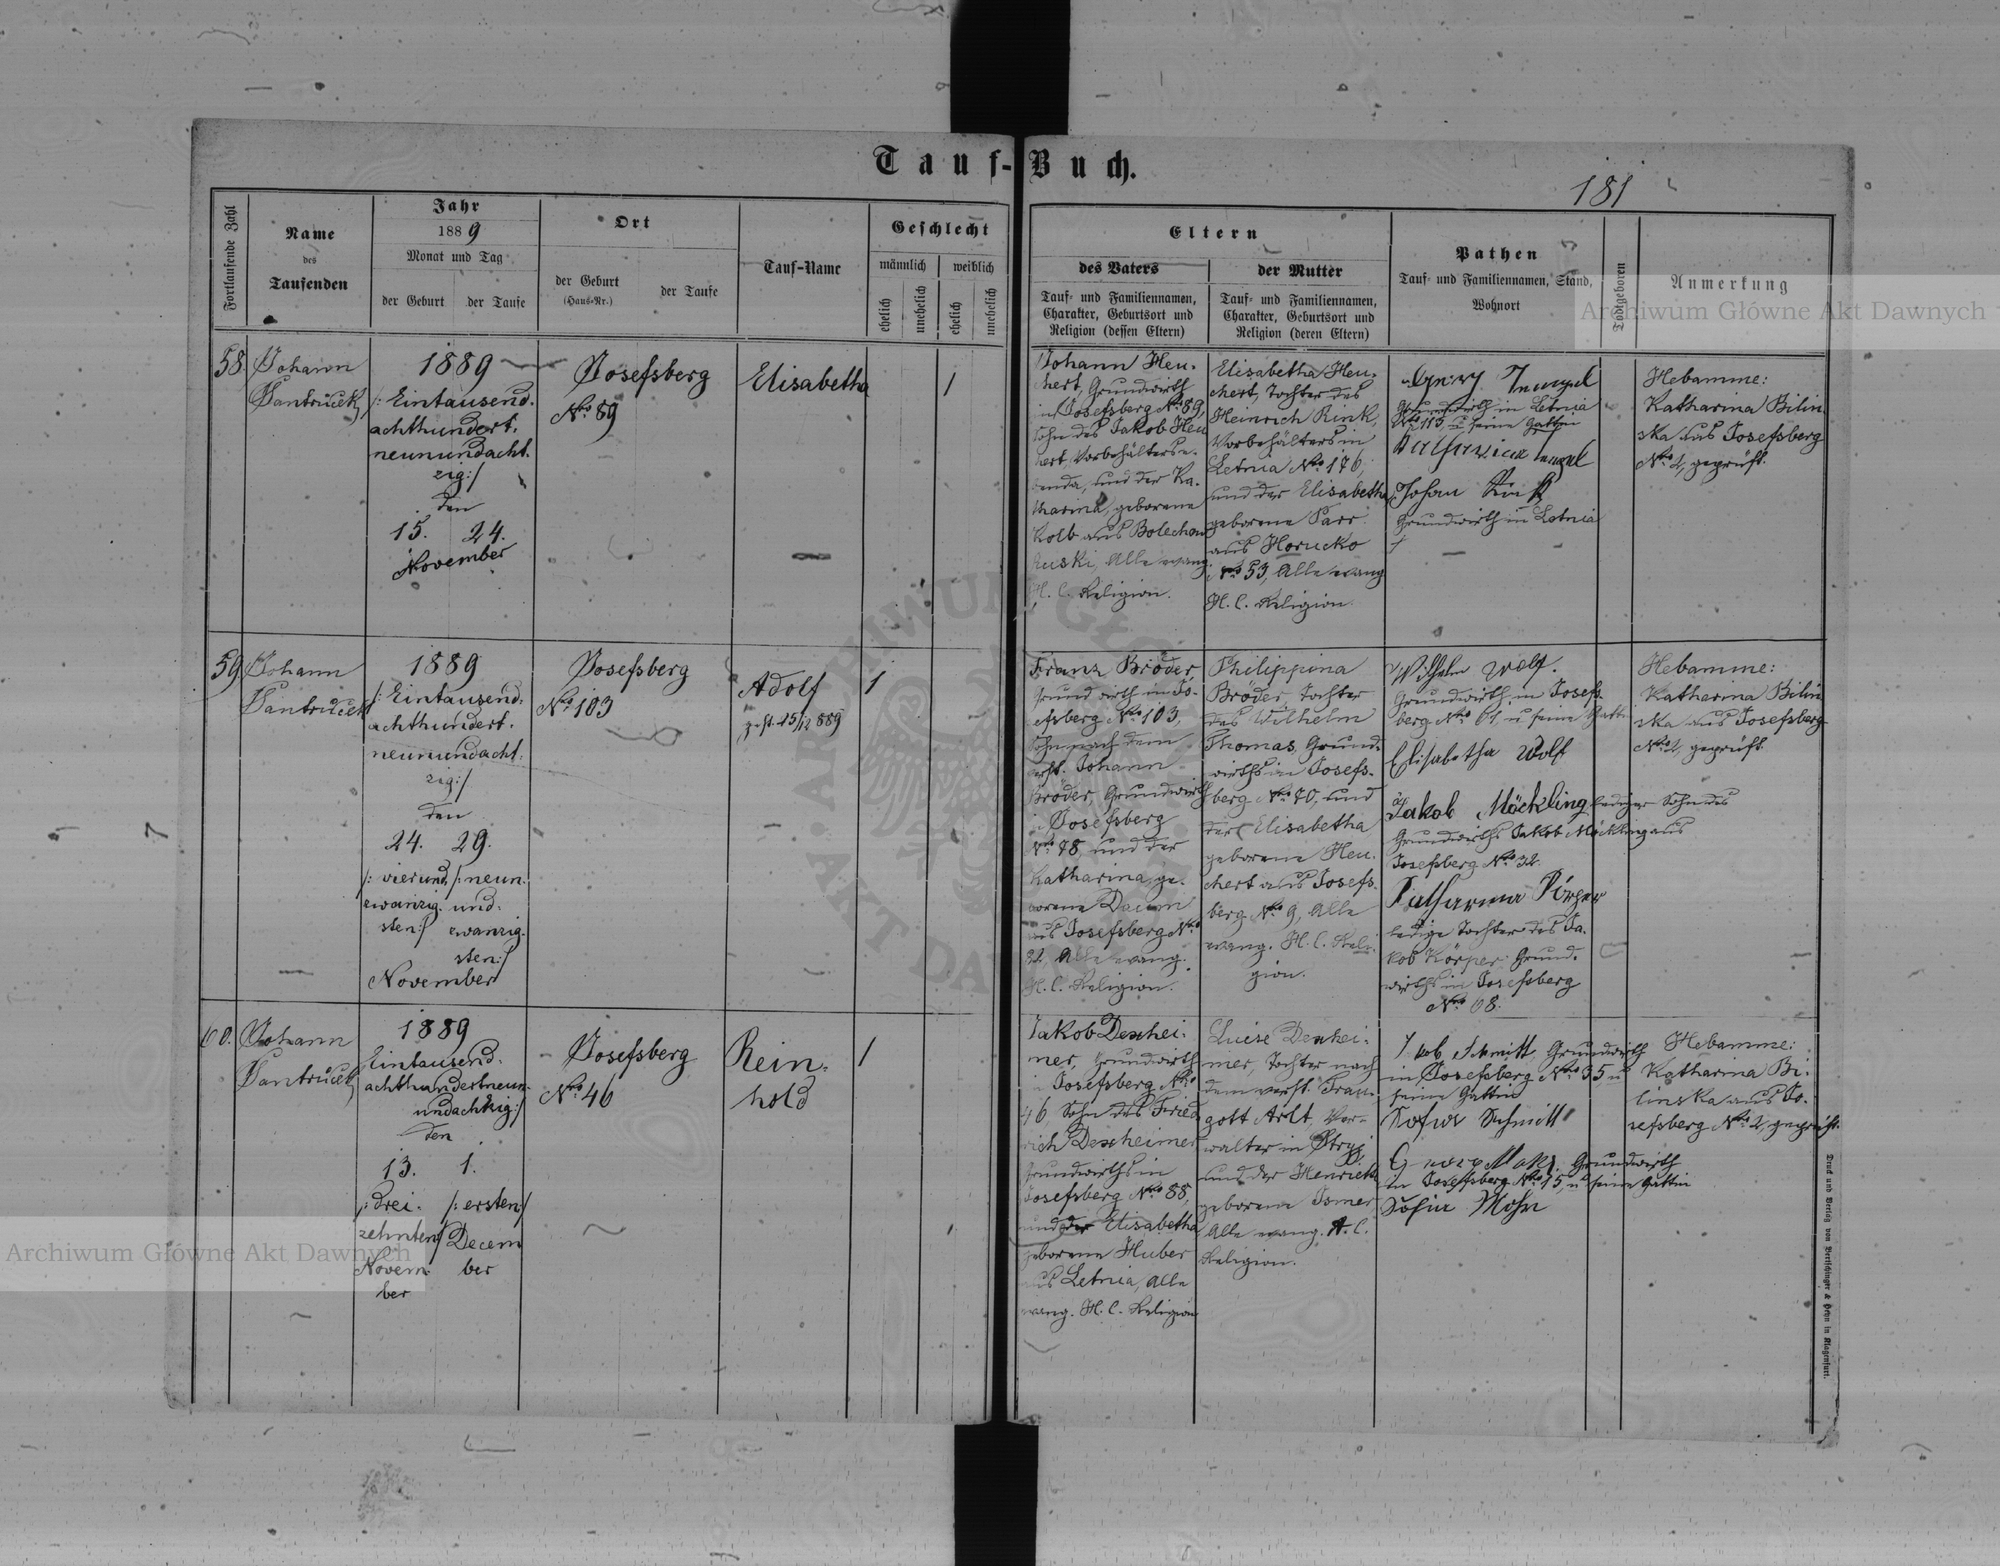 Tauf-Buch.
181
Fortlaufende Zahl
Name
des
Taufenden
Jahr
1889
Monat und Tag
der Geburt
der Taufe
Ort
der Geburt
(Haus-Nr.)
der Taufe
Tauf-Name
Geschlecht
männlich
weiblich
ehelich
unehelich
ehelich
unehelich
Eltern
des Vaters
Tauf- und Familiennamen,
Charakter, Geburtsort und
Religion (dessen Eltern)
der Mutter
Tauf- und Familiennamen,
Charakter, Geburtsort und
Religion (deren Eltern)
Pathen
Tauf- und Familiennamen, Stand,
Wohnort
Todtgeboren
Anmerkung
58
Johann
Jantrücek
1889
/: Eintausend-
achthundert-
neunundacht-
zig :/
den
15. 24.
November
Josefsberg
No 89
Elisabetha
1
Johann Heu-
chert, Grundwirth
in Josefsberg No 89,
Sohn des Jakob Heu
chert, Vorbehälters e-
benda, und der Ka-
tharina, geborene
Kolb aus Bolechow
ruski, Alle evang.
H. C. Religion.
Elisabetha Heu-
chert, Tochter des
Heinrich Rink,
Vorbehälters in
Letnia No 176,
und der Elisabetha
geborene Parr
aus Horucko
No 53, Alle evang
H. C. Religion.
Grundwirth in Letnia
No 113, u. seine Gattin
Johan Rink
Grundwirth in Letnia
Hebamme:
Katharina Bilin
ska aus Josefsberg
No 2, geprüft.
59
Johann
Jantrücek
1889
/: Eintausend-
achthundert-
neunundacht-
zig :/
den
24. 29.
/: vierund /: neun-
zwanzig- und-
sten :/ zwanzig-
sten :/
November
Josefsberg
No 103
Adolf
gest. 15/12 889
1
Franz Bröder,
Grundwirth in Jo-
sefsberg No 103,
Sohn nach dem
verst. Johann
Bröder, Grundwirth
in Josefsberg
No 78, und der
Katharina, ge-
borene Daum
aus Josefsberg No
32, Alle evang.
H. C. Religion.
Philippina
Bröder, Tochter
des Wilhelm
Thomas, Grund-
wirths in Josefs-
berg No 70, und
der Elisabetha
geborene Heu-
chert aus Josefs-
berg No 9, Alle
evang. H. C. Reli-
gion.
Wilhelm Wolf.
Grundwirth in Josefs
berg No 61, u. seine Gattin
Elisabetha Wolf
Jakob Möckling lediger Sohn des
Grundwirths Jakob Möckling aus
Josefsberg No 32.
Katharina Körper
ledige Tochter des Ja-
kob Körper Grund-
wirths in Josefsberg
No 68.
Hebamme:
Katharina Bilin
ska aus Josefsberg
No 2, geprüft.
60.
Johann
Jantrücek
1889
Eintausend-
achthundertneun-
undachtzig :/
den
13. 1.
/: drei- /: ersten :/
zehnten :/ Decem
Novem- ber
ber
Josefsberg
No 46
Rein-
hold
1
Jakob Dexhei-
mer, Grundwirth
in Josefsberg No
46, Sohn des Fried
rich Dexheimer
Grundwirths in
Josefsberg No 88,
und der Elisabetha
geborene Huber
aus Letnia, Alle
evang. H. C. Religion
Luise Dexhei-
mer, Tochter nach
dem verst. Trau-
gott Arlt, Ver-
walter in Stryj,
und der Henriette
geborene Ismer
Alle evang. A. C.
Religion.
Jakob Schmitt, Grundwirth
in Josefsberg No 35 u
seine Gattin
Sofia Schmitt
Georg Mohr, Grundwirth
in Josefsberg No 15, u. seine Gattin
Sofia Mohr
Hebamme:
Katharina Bi-
linska aus Jo-
sefsberg No 2, geprüft.
Druck und Verlag von Bertschinger & Heyn in Klagenfurt.
Archiwum Główne Akt Dawnych
Archiwum Główne Akt Dawnych
ARCHIWUM GŁÓWNE AKT DAWNYCH